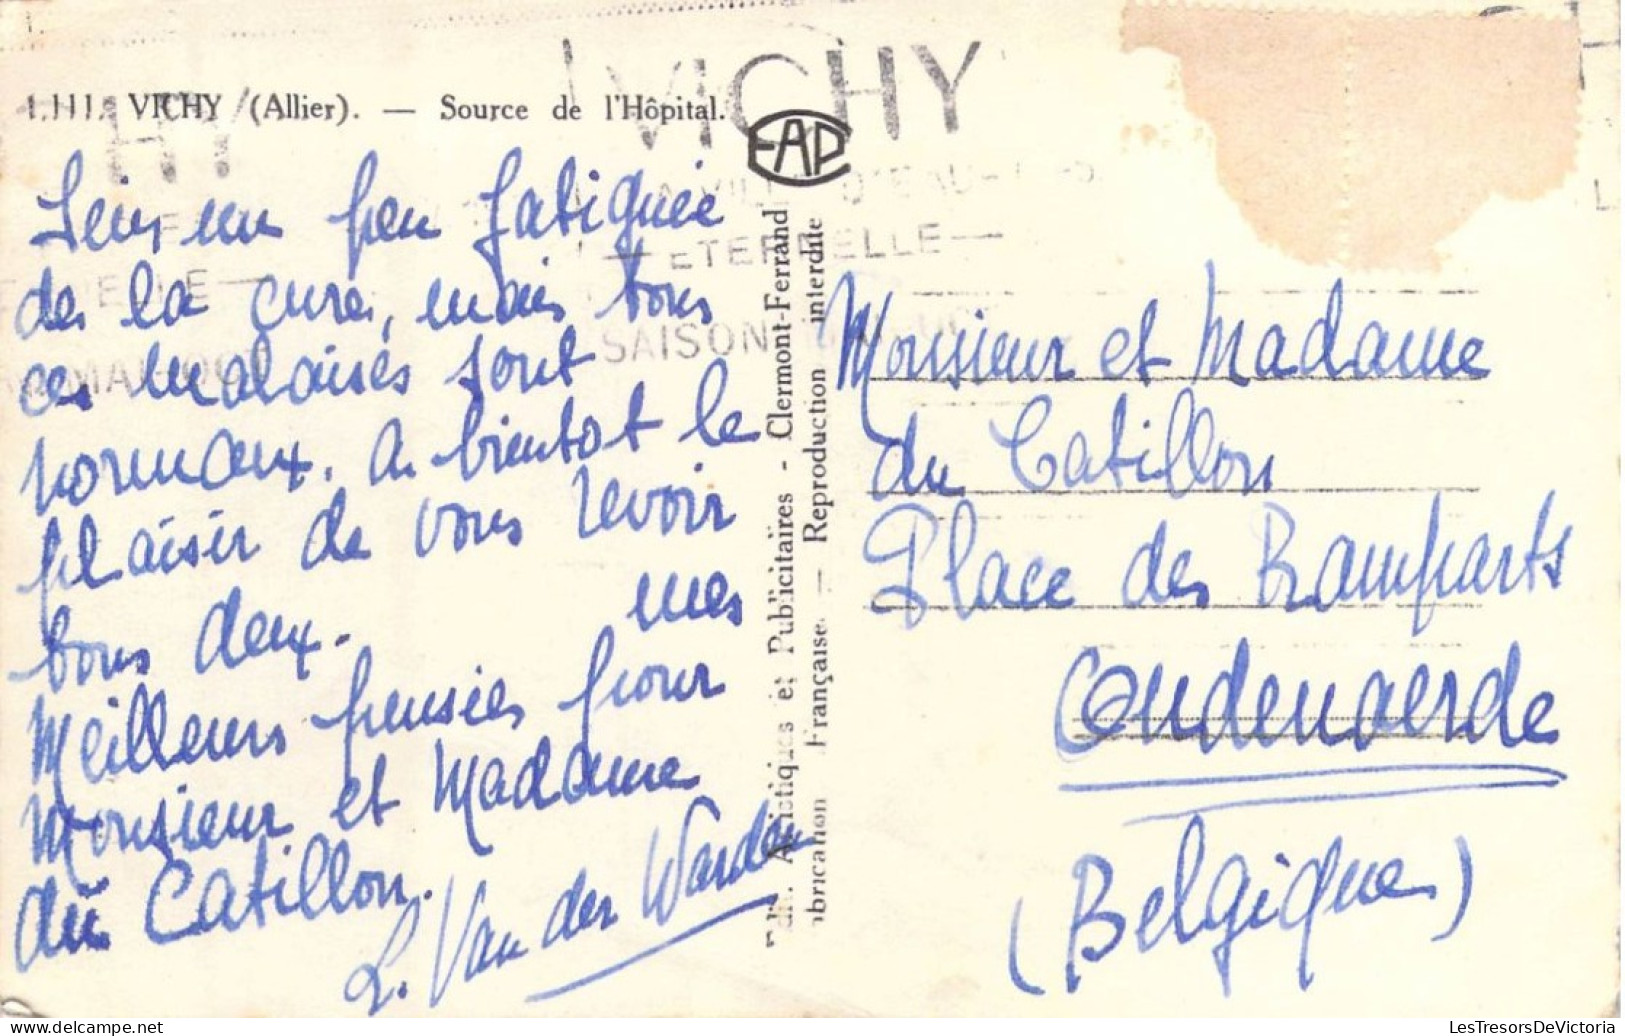 1.111. VICHY (Allier). — Source de l'Hôpital.
VICHY
LA VILLE D'EAU
— ETERNELLE —
SAISON
EAP
Suis un peu fatiguée
de la cure, mais tous
ces malaises sont
normaux. A bientot le
plaisir de vous revoir
tous deux. mes
Meilleurs pensées pour
Monsieur et Madame
du Catillon.
L. Van der Wanden
Edit. Artistiques et Publicitaires - Clermont-Ferrand
Fabrication Française. — Reproduction interdite
Monsieur et Madame
du Catillon
Place des Ramparts
Oudenaerde
(Belgique)
LesTresorsDeVictoria